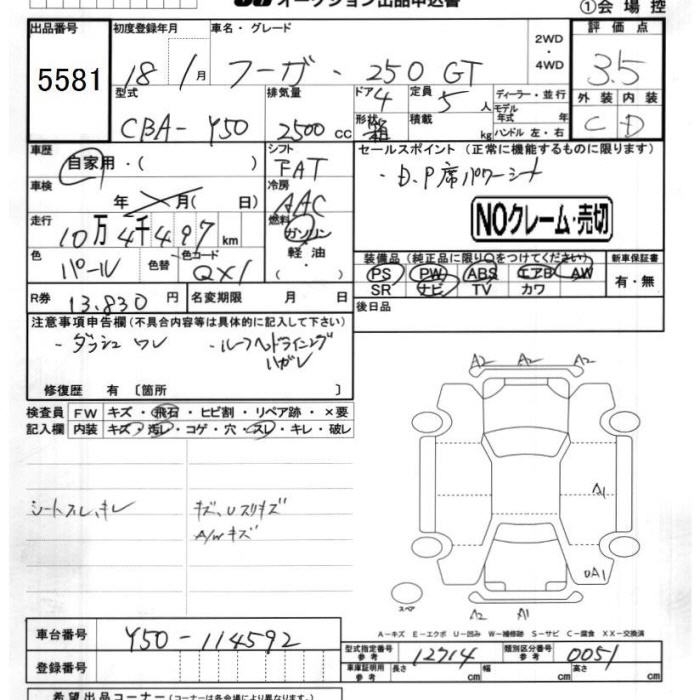 オークション出品申込書
①会場控
出品番号
5581
初度登録年月
18 1月
車名・グレード
フーガ・250 GT
2WD
・
4WD
評価点
3.5
型式
CBA-Y50
排気量
2500cc
ドア
4
形状
箱
定員
5人
積載
kg
ディーラー・並行
モデル
年式 年
ハンドル 左・右
外装 内装
C D
車歴
自家用・( )
シフト
FAT
セールスポイント (正常に機能するものに限ります)
・D.P席パワーシート
NOクレーム・売切
車検
年 月( 日)
冷房
AAC
走行
10万4千497km
燃料
ガソリン
軽油
・( )
色
パール
色替
色コード
QX1
装備品(純正品に限り○をつけてください)
PS PW ABS エアB AW
SR ナビ TV カワ
新車保証書
有・無
R券
13,830円
名変期限 月 日
後日品
注意事項申告欄(不具合内容等は具体的に記入して下さい)
・ダッシュワレ ・ルーフヘッドライニング
ハガレ
修復歴 有〔箇所 〕
検査員
記入欄
FW キズ・飛石・ヒビ割・リペア跡・×要
内装 キズ・汚レ・コゲ・穴・スレ・キレ・破レ
シートスレ、キレ
キズ、Uスリキズ
A/Wキズ
A2 A2 A2
A1
UA1
A2 A1
スペア
A-キズ E-エクボ U-凹み W-補修跡 S-サビ C-腐食 XX-交換済
車台番号
Y50-114592
登録番号
型式指定番号
参考
12714
類別区分番号
参考
0051
車庫証明用
参考
長さ cm 幅 cm 高さ cm
希望出品コーナー(コーナーは各会場により異なります。)